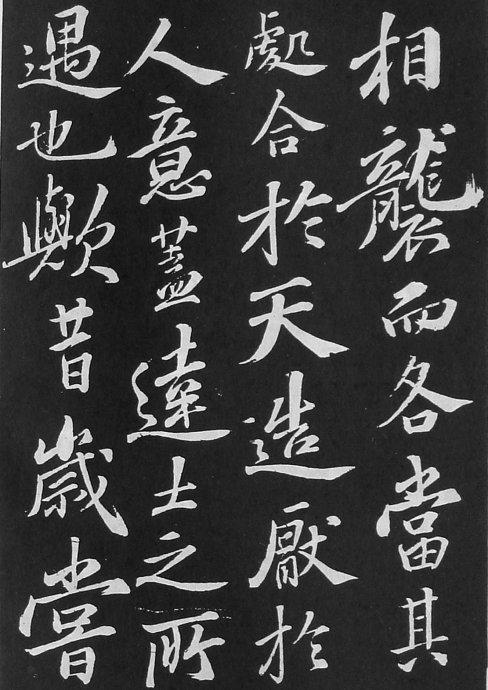 相襲而各當其
處合於天造厭於
人意蓋達士之所
遇也歟昔歲嘗